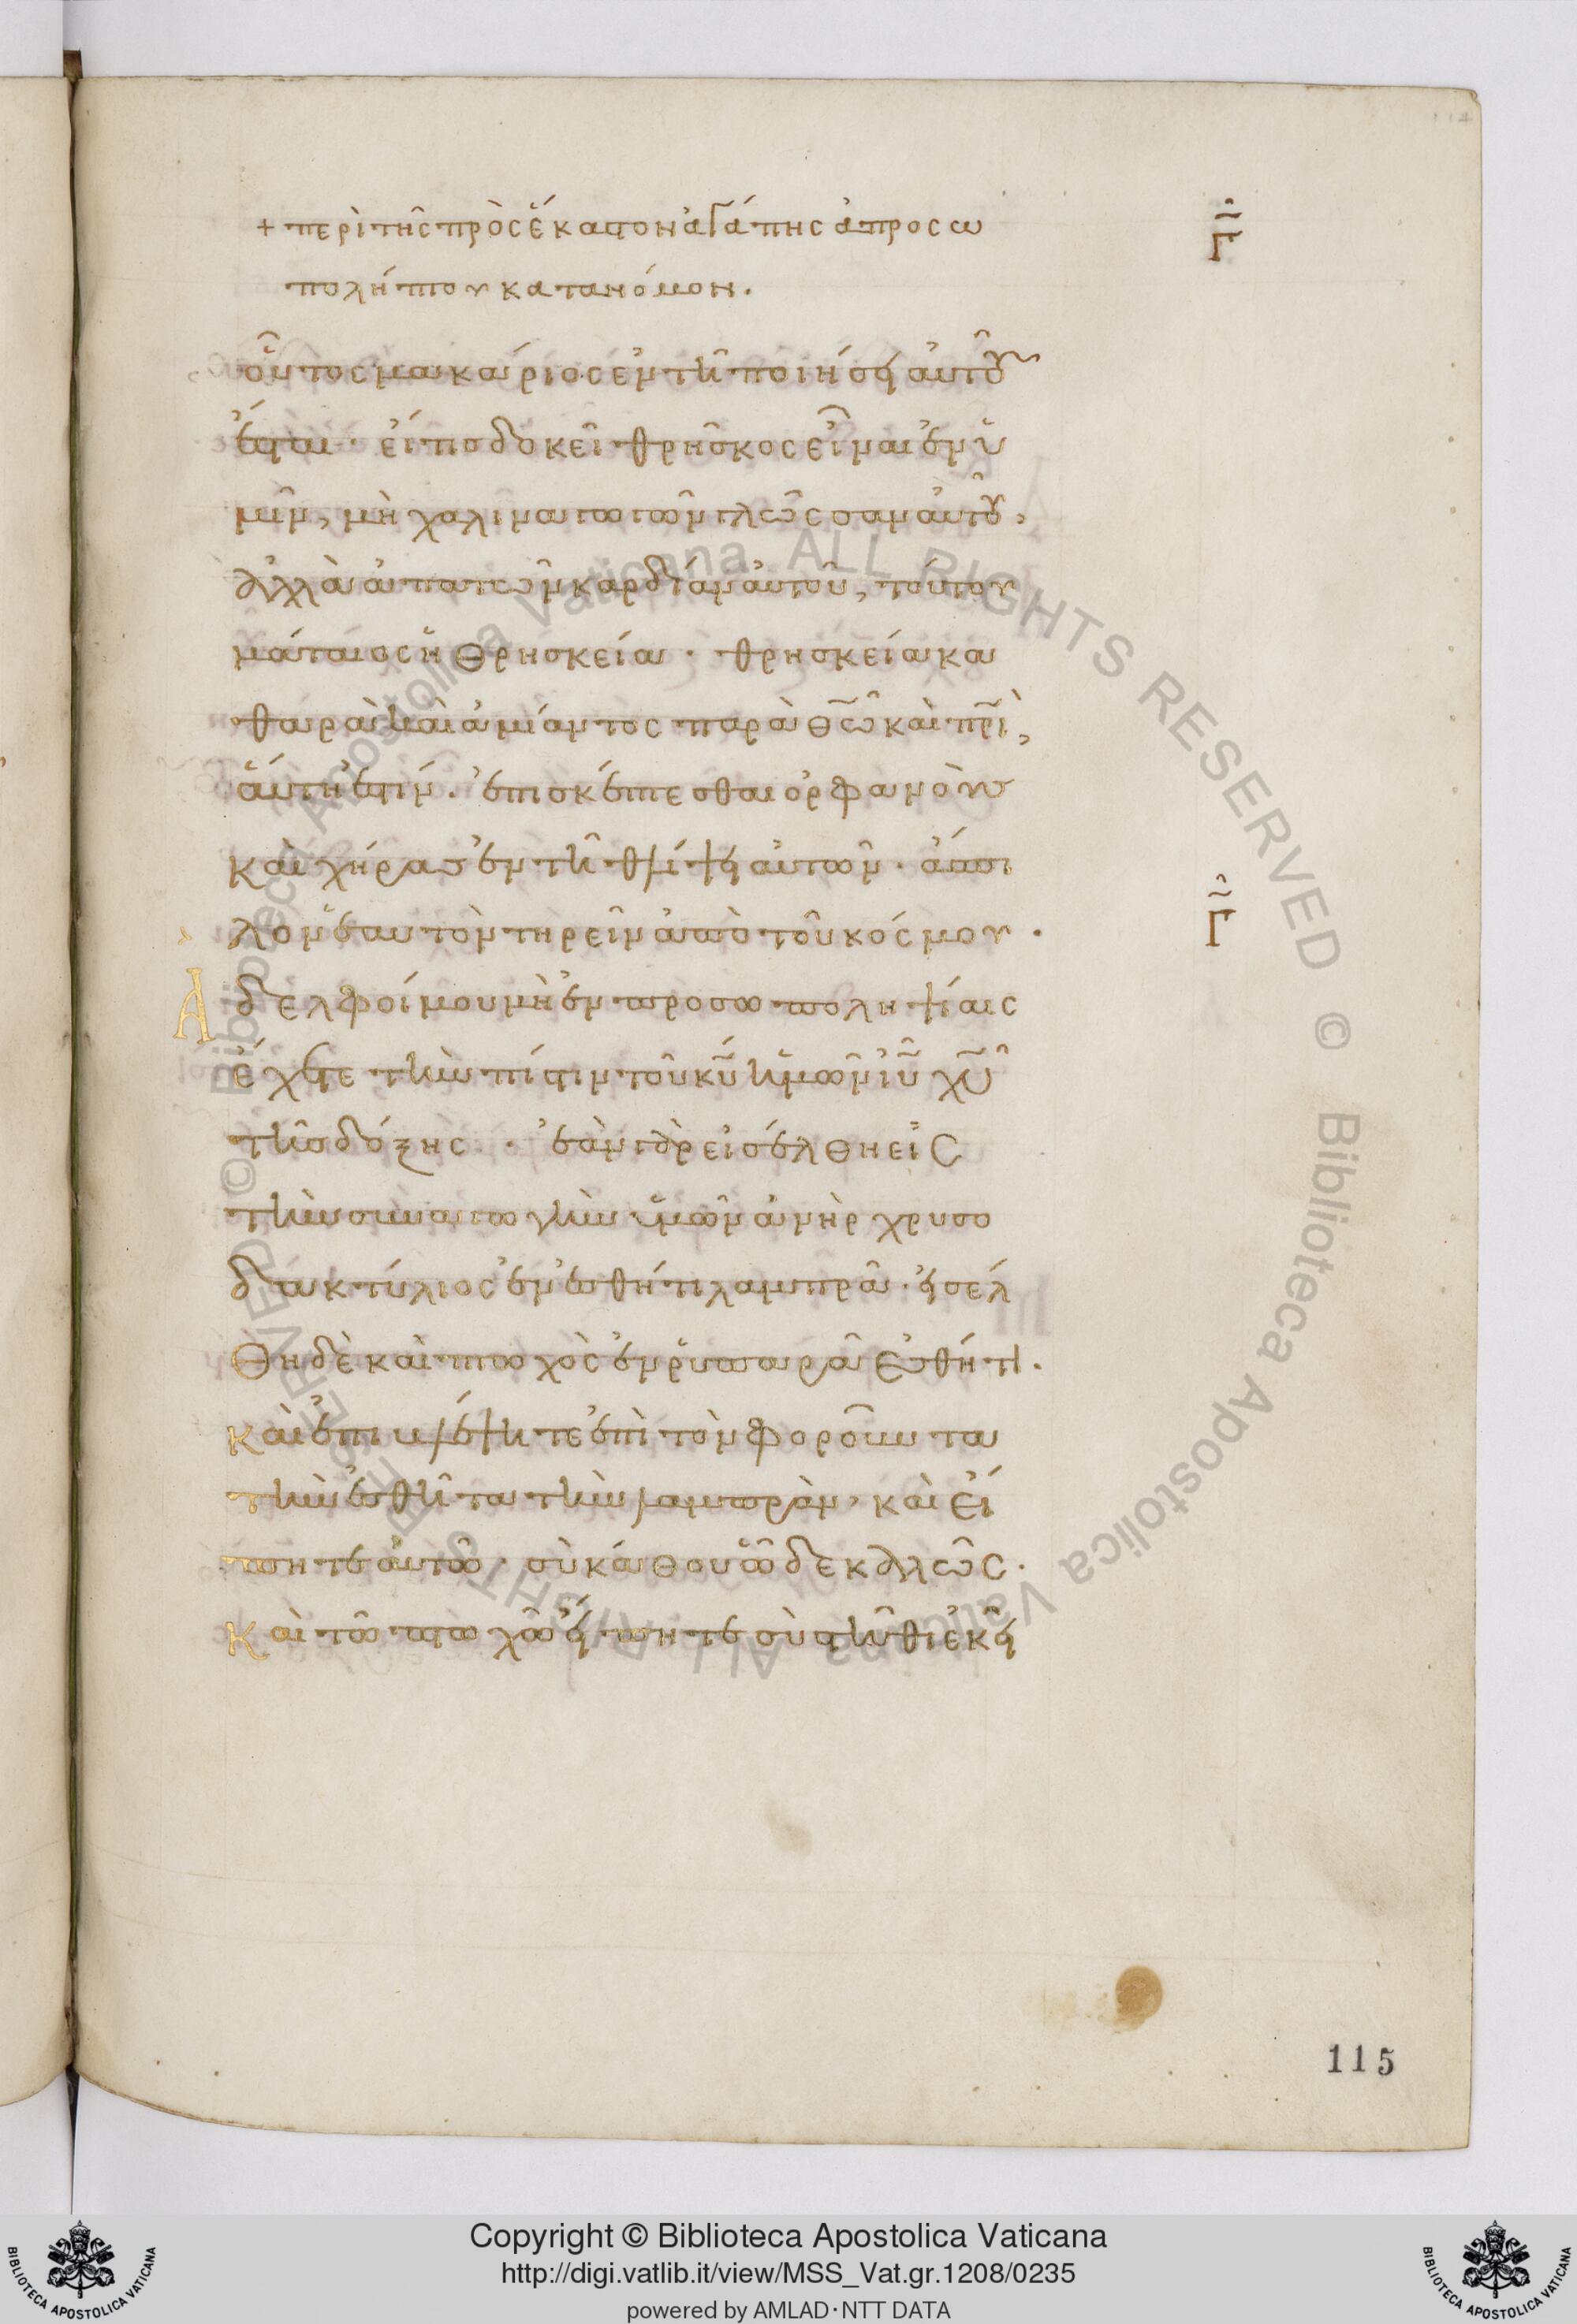 + περὶ τῆς πρὸς ἕκαστον ἀγάπης ἀπροσω
πολήπτου κατα νόμον.
Γ
οὗτος μακάριος ἐν τῆ ποιήσει αὐτοῦ
ἔσται· εἴ τις δοκεῖ θρῆσκος εἶναι ἐν ὑ
μῖν, μὴ χαλιναγωγῶν γλῶσσαν αὐτοῦ,
ἀλλὰ ἀπατῶν καρδίαν αὐτοῦ, τούτου
μάταιος ἡ θρησκεία· θρησκεία κα
θαρὰ καὶ ἀμίαντος παρὰ θ̅ω̅ καὶ π̅ρ̅ι̅,
αὕτη ἐστίν. ἐπισκέπτεσθαι ὀρφανοὺς
καὶ χήρας ἐν τῆ θλίψει αὐτῶν· ἄσπι
λον ἑαυτὸν τηρεῖν ἀπὸ τοῦ κόσμου·
Γ
Ἀδελφοί μου μὴ ἐν προσωποληψίαις
ἔχετε τὴν πίστιν τοῦ κ̅υ̅ ἡμῶν ἰ̅υ̅ χ̅υ̅
τῆς δόξης· ἐὰν γὰρ εἰσέλθη εἰς
τὴν συναγωγὴν ὑμῶν ἀνὴρ χρυσο
δακτύλιος ἐν ἐσθήτι λαμπρᾶ· εἰσέλ
θη δὲ καὶ πτωχὸς ἐν ῥυπαρᾶ ἐσθήτι·
καὶ ἐπιβλέψητε ἐπὶ τὸν φοροῦντα
τὴν ἐσθῆτα τὴν λαμπρὰν, καὶ εἴ
πητε αὐτῶ· σὺ κάθου ὧδε καλῶς·
καὶ τῶ πτωχῶ εἴπητε σὺ στῆθι ἐκεῖ
115
© Biblioteca Apostolica Vaticana ALL RIGHTS RESERVED © Biblioteca Apostolica Vaticana ALL RIGHTS RESERVED
Copyright © Biblioteca Apostolica Vaticana
http://digi.vatlib.it/view/MSS_Vat.gr.1208/0235
powered by AMLAD·NTT DATA
BIBLIOTECA APOSTOLICA VATICANA
BIBLIOTECA APOSTOLICA VATICANA